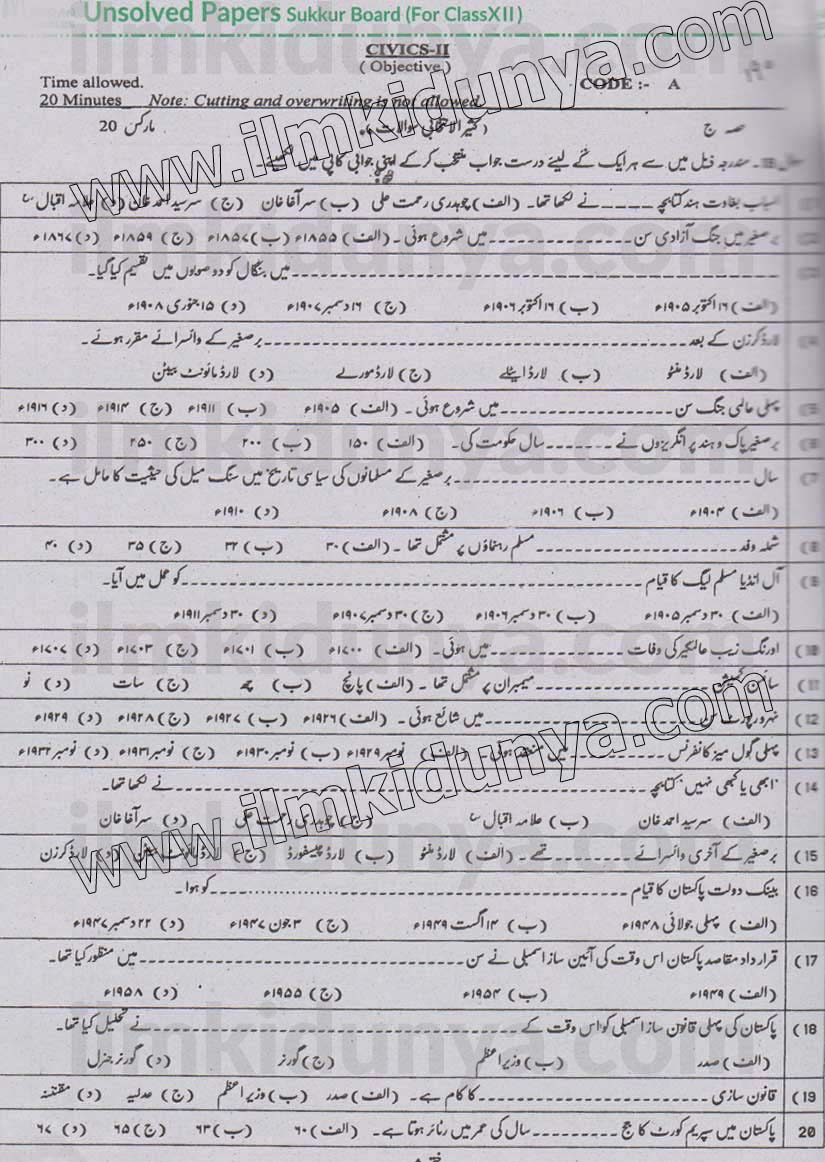 Unsolved Papers Sukkur Board (For ClassXII)
CIVICS-II
(Objective)
CODE :- A
Time allowed.
20 Minutes Note: Cutting and overwriting is not allowed.
صہ ج (کثیر الانتخابی سوالات) مارکس 20
مندرجہ ذیل میں سے ہر ایک کے لیئے درست جواب منتخب کر کے اپنی جوابی کاپی میں لکھیئے۔
بغاوت ہند کتابچہ ـــــــ نے لکھا تھا۔ (الف) چوہدری رحمت علی (ب) سر آغا خان (ج) سر سید احمد خان (د) علامہ اقبال
برصغیر میں جنگ آزادی سن ـــــــ میں شروع ہوئی۔ (الف) ۱۸۵۵ء (ب) ۱۸۵۷ء (ج) ۱۸۵۹ء (د) ۱۸۶۷ء
ـــــــ میں بنگال کو دو صوبوں میں تقسیم کیا گیا۔
(الف) ۱۶ اکتوبر ۱۹۰۵ء (ب) ۱۶ اکتوبر ۱۹۰۶ء (ج) ۱۶ دسمبر ۱۹۰۷ء (د) ۱۵ جنوری ۱۹۰۸ء
لارڈ کرزن کے بعد ـــــــ برصغیر کے وائسرائے مقرر ہوئے۔
(الف) لارڈ منٹو (ب) لارڈ ایٹلے (ج) لارڈ مورلے (د) لارڈ مانونٹ بیٹن
5) پہلی عالمی جنگ سن ـــــــ میں شروع ہوئی۔ (الف) ۱۹۰۵ء (ب) ۱۹۱۱ء (ج) ۱۹۱۴ء (د) ۱۹۱۶ء
6) برصغیر پاک و ہند پر انگریزوں نے ـــــــ سال حکومت کی۔ (الف) ۱۵۰ (ب) ۲۰۰ (ج) ۲۵۰ (د) ۳۰۰
7) سال ـــــــ برصغیر کے مسلمانوں کی سیاسی تاریخ میں سنگ میل کی حیثیت کا حامل ہے۔
(الف) ۱۹۰۴ء (ب) ۱۹۰۶ء (ج) ۱۹۰۸ء (د) ۱۹۱۰ء
8) شملہ وفد ـــــــ مسلم رہنماؤں پر مشتمل تھا۔ (الف) ۳۰ (ب) ۳۲ (ج) ۳۵ (د) ۴۰
9) آل انڈیا مسلم لیگ کا قیام ـــــــ کو عمل میں آیا۔
(الف) ۳۰ دسمبر ۱۹۰۵ء (ب) ۳۰ دسمبر ۱۹۰۶ء (ج) ۳۰ دسمبر ۱۹۰۷ء (د) ۳۰ دسمبر ۱۹۱۱ء
10) اورنگ زیب عالمگیر کی وفات ـــــــ میں ہوئی۔ (الف) ۱۷۰۰ء (ب) ۱۷۰۱ء (ج) ۱۷۰۳ء (د) ۱۷۰۷ء
11) سائمن کمیشن ـــــــ میمبران پر مشتمل تھا۔ (الف) پانچ (ب) چھ (ج) سات (د) نو
12) نہرو رپورٹ سن ـــــــ میں شائع ہوئی۔ (الف) ۱۹۲۶ء (ب) ۱۹۲۷ء (ج) ۱۹۲۸ء (د) ۱۹۲۹ء
13) پہلی گول میز کانفرنس ـــــــ میں منعقد ہوئی۔ (الف) نومبر ۱۹۲۹ء (ب) نومبر ۱۹۳۰ء (ج) نومبر ۱۹۳۱ء (د) نومبر ۱۹۳۲ء
14) 'ابھی یا کبھی نہیں' کتابچہ ـــــــ نے لکھا تھا۔
(الف) سر سید احمد خان (ب) علامہ اقبال (ج) چوہدری رحمت علی (د) سر آغا خان
15) برصغیر کے آخری وائسرائے ـــــــ تھے۔ (الف) لارڈ منٹو (ب) لارڈ چیمسفورڈ (ج) لارڈ مانونٹ بیٹن (د) لارڈ کرزن
16) بینک دولت پاکستان کا قیام ـــــــ کو ہوا۔
(الف) پہلی جولائی ۱۹۴۸ء (ب) ۱۴ اگست ۱۹۴۹ء (ج) ۳ جون ۱۹۴۷ء (د) ۲۲ دسمبر ۱۹۴۷ء
17) قرارداد مقاصد پاکستان اس وقت کی آئین ساز اسمبلی نے سن ـــــــ میں منظور کیا تھا۔
(الف) ۱۹۴۹ء (ب) ۱۹۵۴ء (ج) ۱۹۵۵ء (د) ۱۹۵۸ء
18) پاکستان کی پہلی قانون ساز اسمبلی کو اس وقت کے ـــــــ نے تحلیل کیا تھا۔
(الف) صدر (ب) وزیر اعظم (ج) گورنر (د) گورنر جنرل
19) قانون سازی ـــــــ کا کام ہے۔ (الف) صدر (ب) وزیر اعظم (ج) عدلیہ (د) مقننہ
20 پاکستان میں سپریم کورٹ کا جج ـــــــ سال کی عمر میں رٹائر ہوتا ہے۔ (الف) ۶۰ (ب) ۶۳ (ج) ۶۵ (د) ۶۷
www.ilmkidunya.com
www.ilmkidunya.com
ilmkidunya.com
ilmkidunya.com
ilmkidunya.com
ilmkidunya.com
ilmkidunya.com